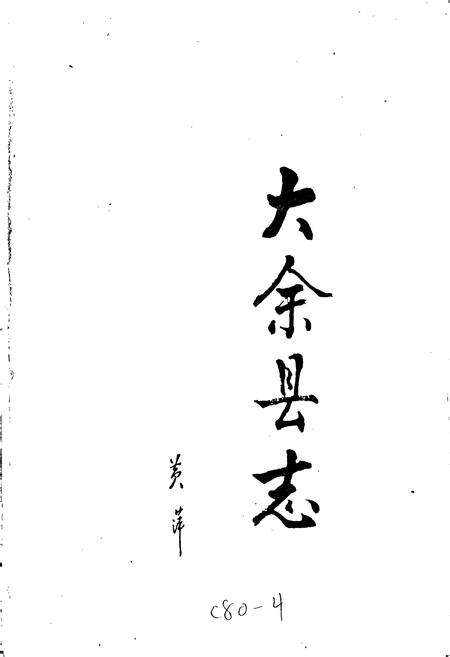 大余县志
黄萍
C80-4